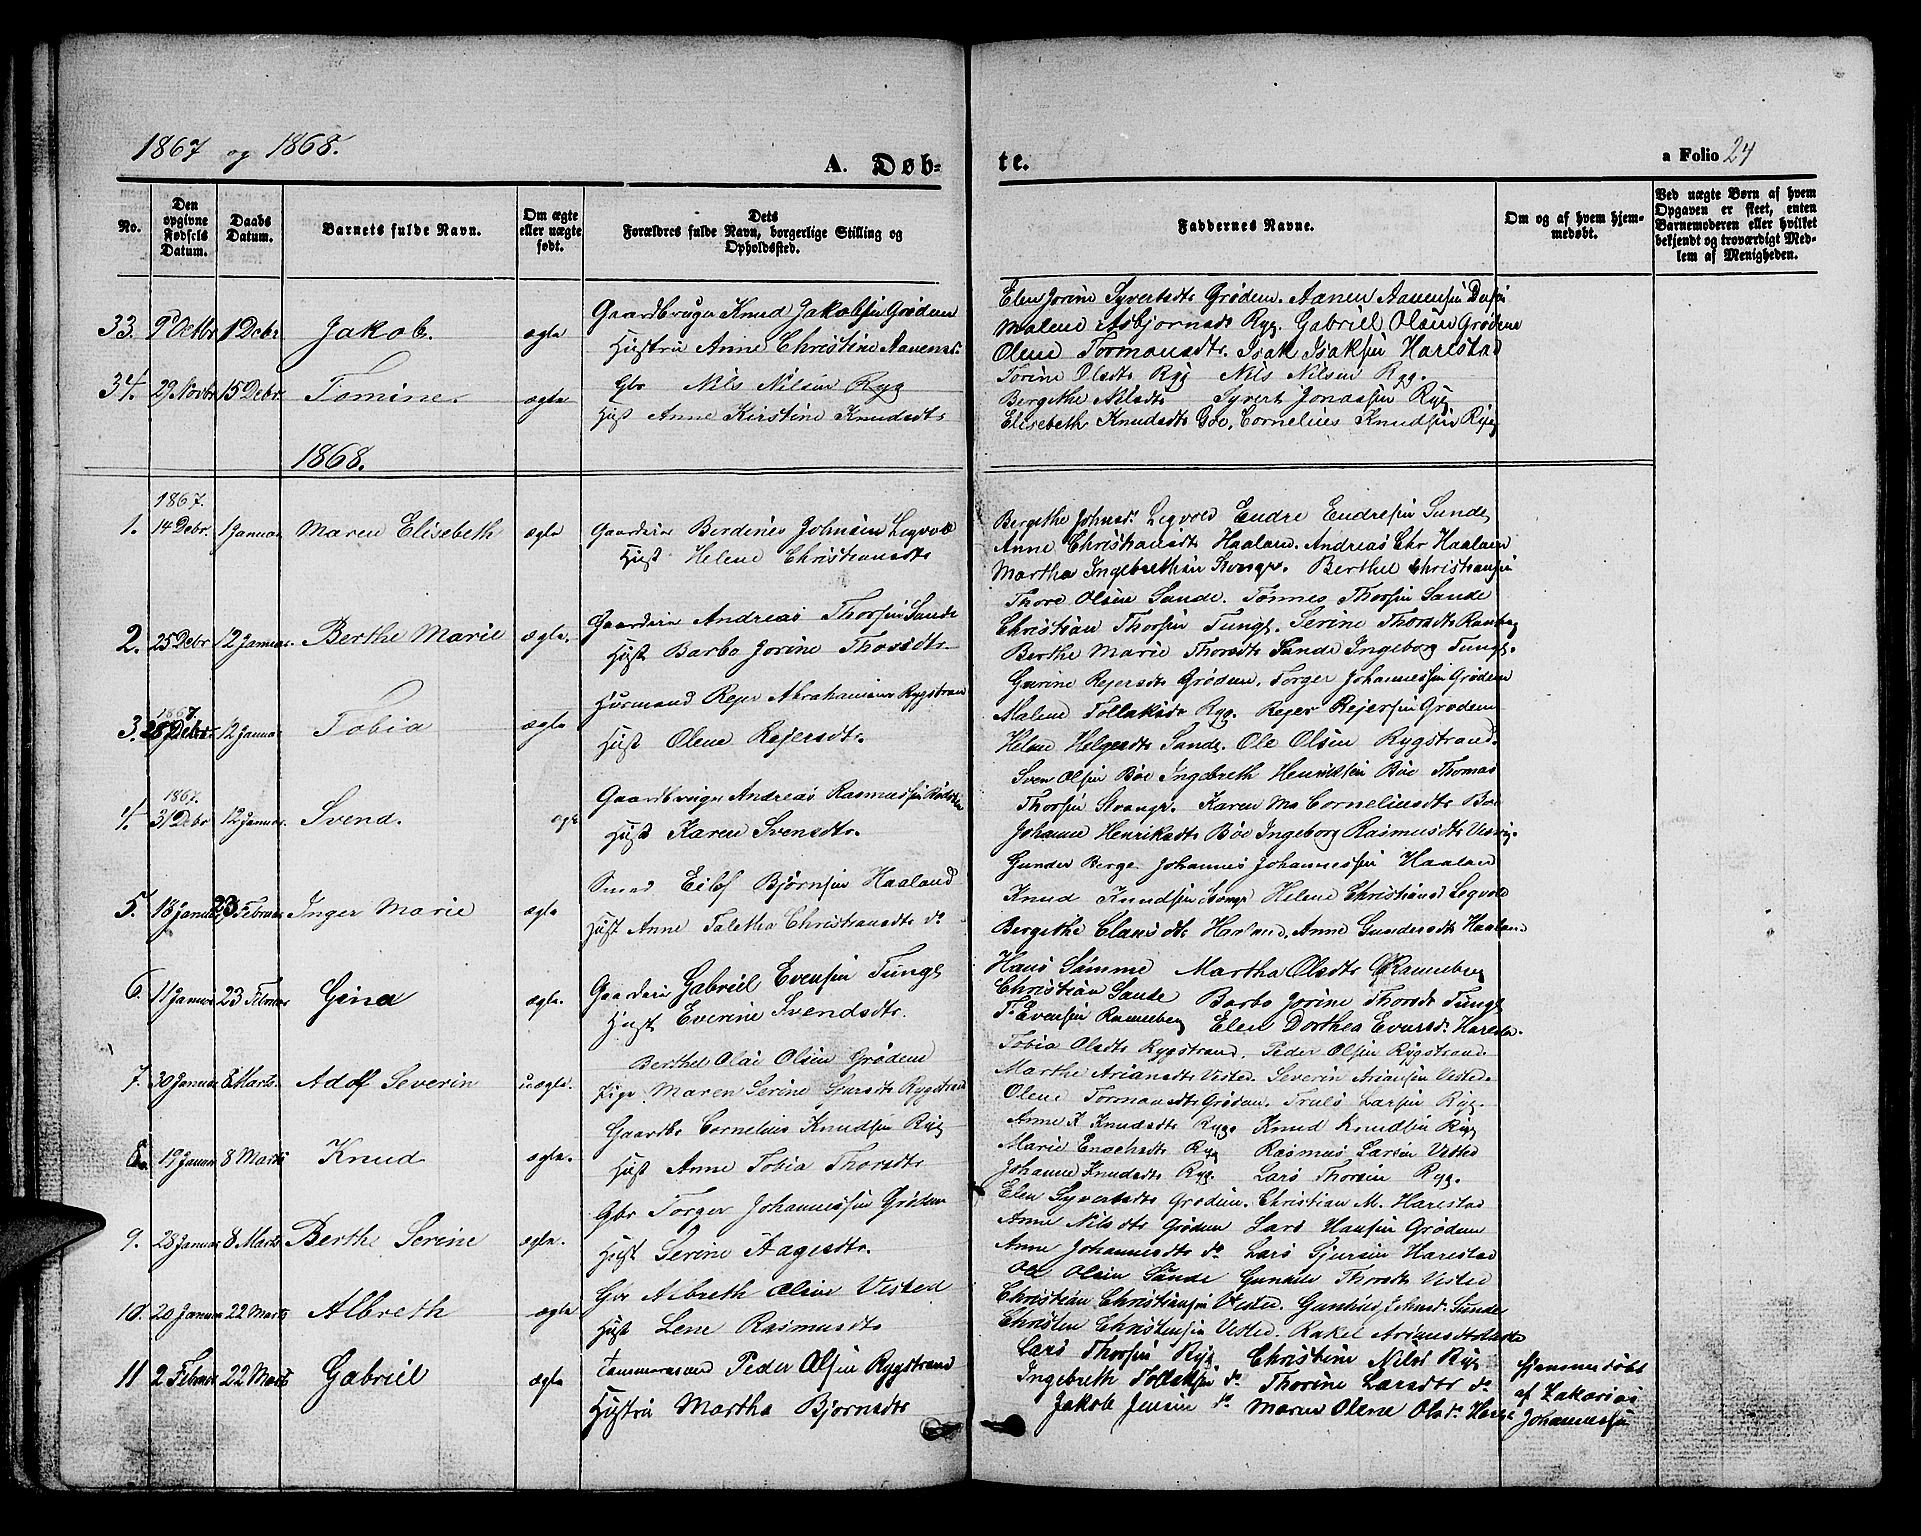 1867 og 1868.
A. Døb-
te.
a Folio 24
No.
Den opgivne Fødsels Datum.
Daabs Datum.
Barnets fulde Navn.
Om ægte eller uægte født.
Dets Forældres fulde Navn, borgerlige Stilling og Opholdssted.
Faddernes Navne.
Om og af hvem hjemmedøbt.
Ved uægte Børn af hvem Opgaven er skeet, enten Barnemoderen eller hvilket bekjendt og troværdigt Medlem af Menigheden.
33. 9 Octbr 1 Decbr Jakob. ægte
Gaardbruger Knud Jakobsen Grødem
Hustru Anne Christine Aanensd.
Elen Jorine Syvertsdtr Grødem. Aanen Aanensen
Malene Asbjornsdtr Ryg. Gabriel Olsen Grødem
Olene Tormansdtr. Isak Isaksen Harestad
34. 29 Novbr 15 Debr. Tomine. ægte
Gbr Nils Nilsen Ryg
Hust Anne Kirstine Knudsdtr
Torine Olsdtr Ryg Nils Nilsen Ryg.
Bergithe Nilsdtr Syvert Jonassen Ryg
Elisebeth Knudsdtr Bøe, Cornelius Knudsen Ryg
1868.
1867.
1. 14 Debr. 1 Januar Maren Elisebeth ægte
Gaardeier Berdines Johnsen Legvold
Hust Helene Christiansdtr
Bergethe Johnsd. Legvold Endre Endresen Sande
Anne Christiansdtr Haaland. Andreas Chr Haaland
Martha Ingebrethsen Stvangr. Berthel Christiansen
2. 25 Debr 12 Januar. Berthe Marie ægte.
Gaardeier Andreas Thorsen Sande
Hust Barbo Jorine Thorsdtr
Thore Olsen Sande. Tønnes Thorsen Sande
Christian Thorsen Tungl. Serine Thorsdtr Ranberg
Berthe Marie Thorsdtr Sande Ingeborg Tungl.
1867.
3. 28 Debr. 12 Januar Tobia ægte
Huusmand Rejer Abrahamsen Rygstrand
Hust Olene Rejersdtr.
Gurine Rejersdtr Grødem, Torger Johannessen Grødem
Malene Tollaksdtr Ryg. Rejer Rejersen Grødem
Helene Helgesdtr Sande. Ole Olsen Rygstrand.
1867.
4. 31 Debr 12 Januar. Svend. ægte
Gaardbruger Andreas Rasmussen
Hust Karen Svensdtr.
Sven Olsen Bøe Ingebreth Henriksen Bøe Thomas
Thorsen Stvangr. Karen Ma Corneliusdtr Bøe
Johanne Henriksdtr Bøe Ingeborg Rasmusdtr
5. 18 Januar 23 Februar Inger Marie ægte
Smed Eilef Bjørnsen Haaland
Hust Anne Taletha Christiansdtr do
Gunder Berge Johannes Johannessen Haaland
Knud Knudsen Helene Christiansd Legvold
Bergithe Clausdtr Haaland, Anne Gundersdtr Haaland
6. 11 Januar 23 Februar Gina ægte.
Gaardeier Gabriel Evensen Tungl
Hust Everine Svendsdtr.
Hans Sømme Martha Olsdtr Ranneberg
Christian Sande Barbo Jorine Thorsdtr Tungl
T. Evensen Ranneberg Elen Dorthea Eversd. Harestad.
7. 30 Januar 8 Marts. Adolf Severin uægte.
Berthel Olai Olsen Grødem
Pige Maren Serine Sjursdtr Rygstrand
Tobia Olsdtr Rygstrand, Peder Olsen Rygstrand
Marthe Ariansdtr Vested. Severin Ariansen Vested.
Olene Tormansdtr Grødem. Truls Larsen Ryg.
8. 19 Januar 8 Marts Knud ægte.
Gaardbr Cornelius Knudsen Ryg
Hust Anne Tobia Thorsdtr
Anne K Knudsdtr Ryg Knud Knudsen Ryg
Marie Enochsdtr Ryg Rasmus Larsen Vested
Johanne Knudsdtr Ryg. Lars Thorsen Ryg.
9. 28 Januar 8 Marts Berthe Serine ægte.
Gbr Torger Johannessen Grødem
Hust Serine Aagesdtr.
Elen Syvertsdtr Grødem. Christian M. Harestad
Anne Nilsdtr Grødem Lars Hansen Grødem
Anne Johannesdtr do Lars Sjursen Harestad
10. 20 Januar 22 Marts Albreth ægte
Gbr Albreth Olsen Vested
Hust Lene Rasmusdtr
Ole Olsen Sande Gunhild Thorsdtr Vested
Christian Christiansen Vested. Johnsd. Sande
Christen Christensen Vested. Rakel Ariansdtr
11 2 Februar 22 Marts Gabriel ægte
Tømmermand Peder Olsen Rygstrand
Hustru Martha Bjornsdtr
Lars Thorsen Ryg Christine Nilsd Ryg
Ingebreth Tollaksen do Thorine Larsdtr do
Jakob Jensen do Maren Olene Olsd. Harge
Hjemmedøbt
af Zakarias
Johannessen